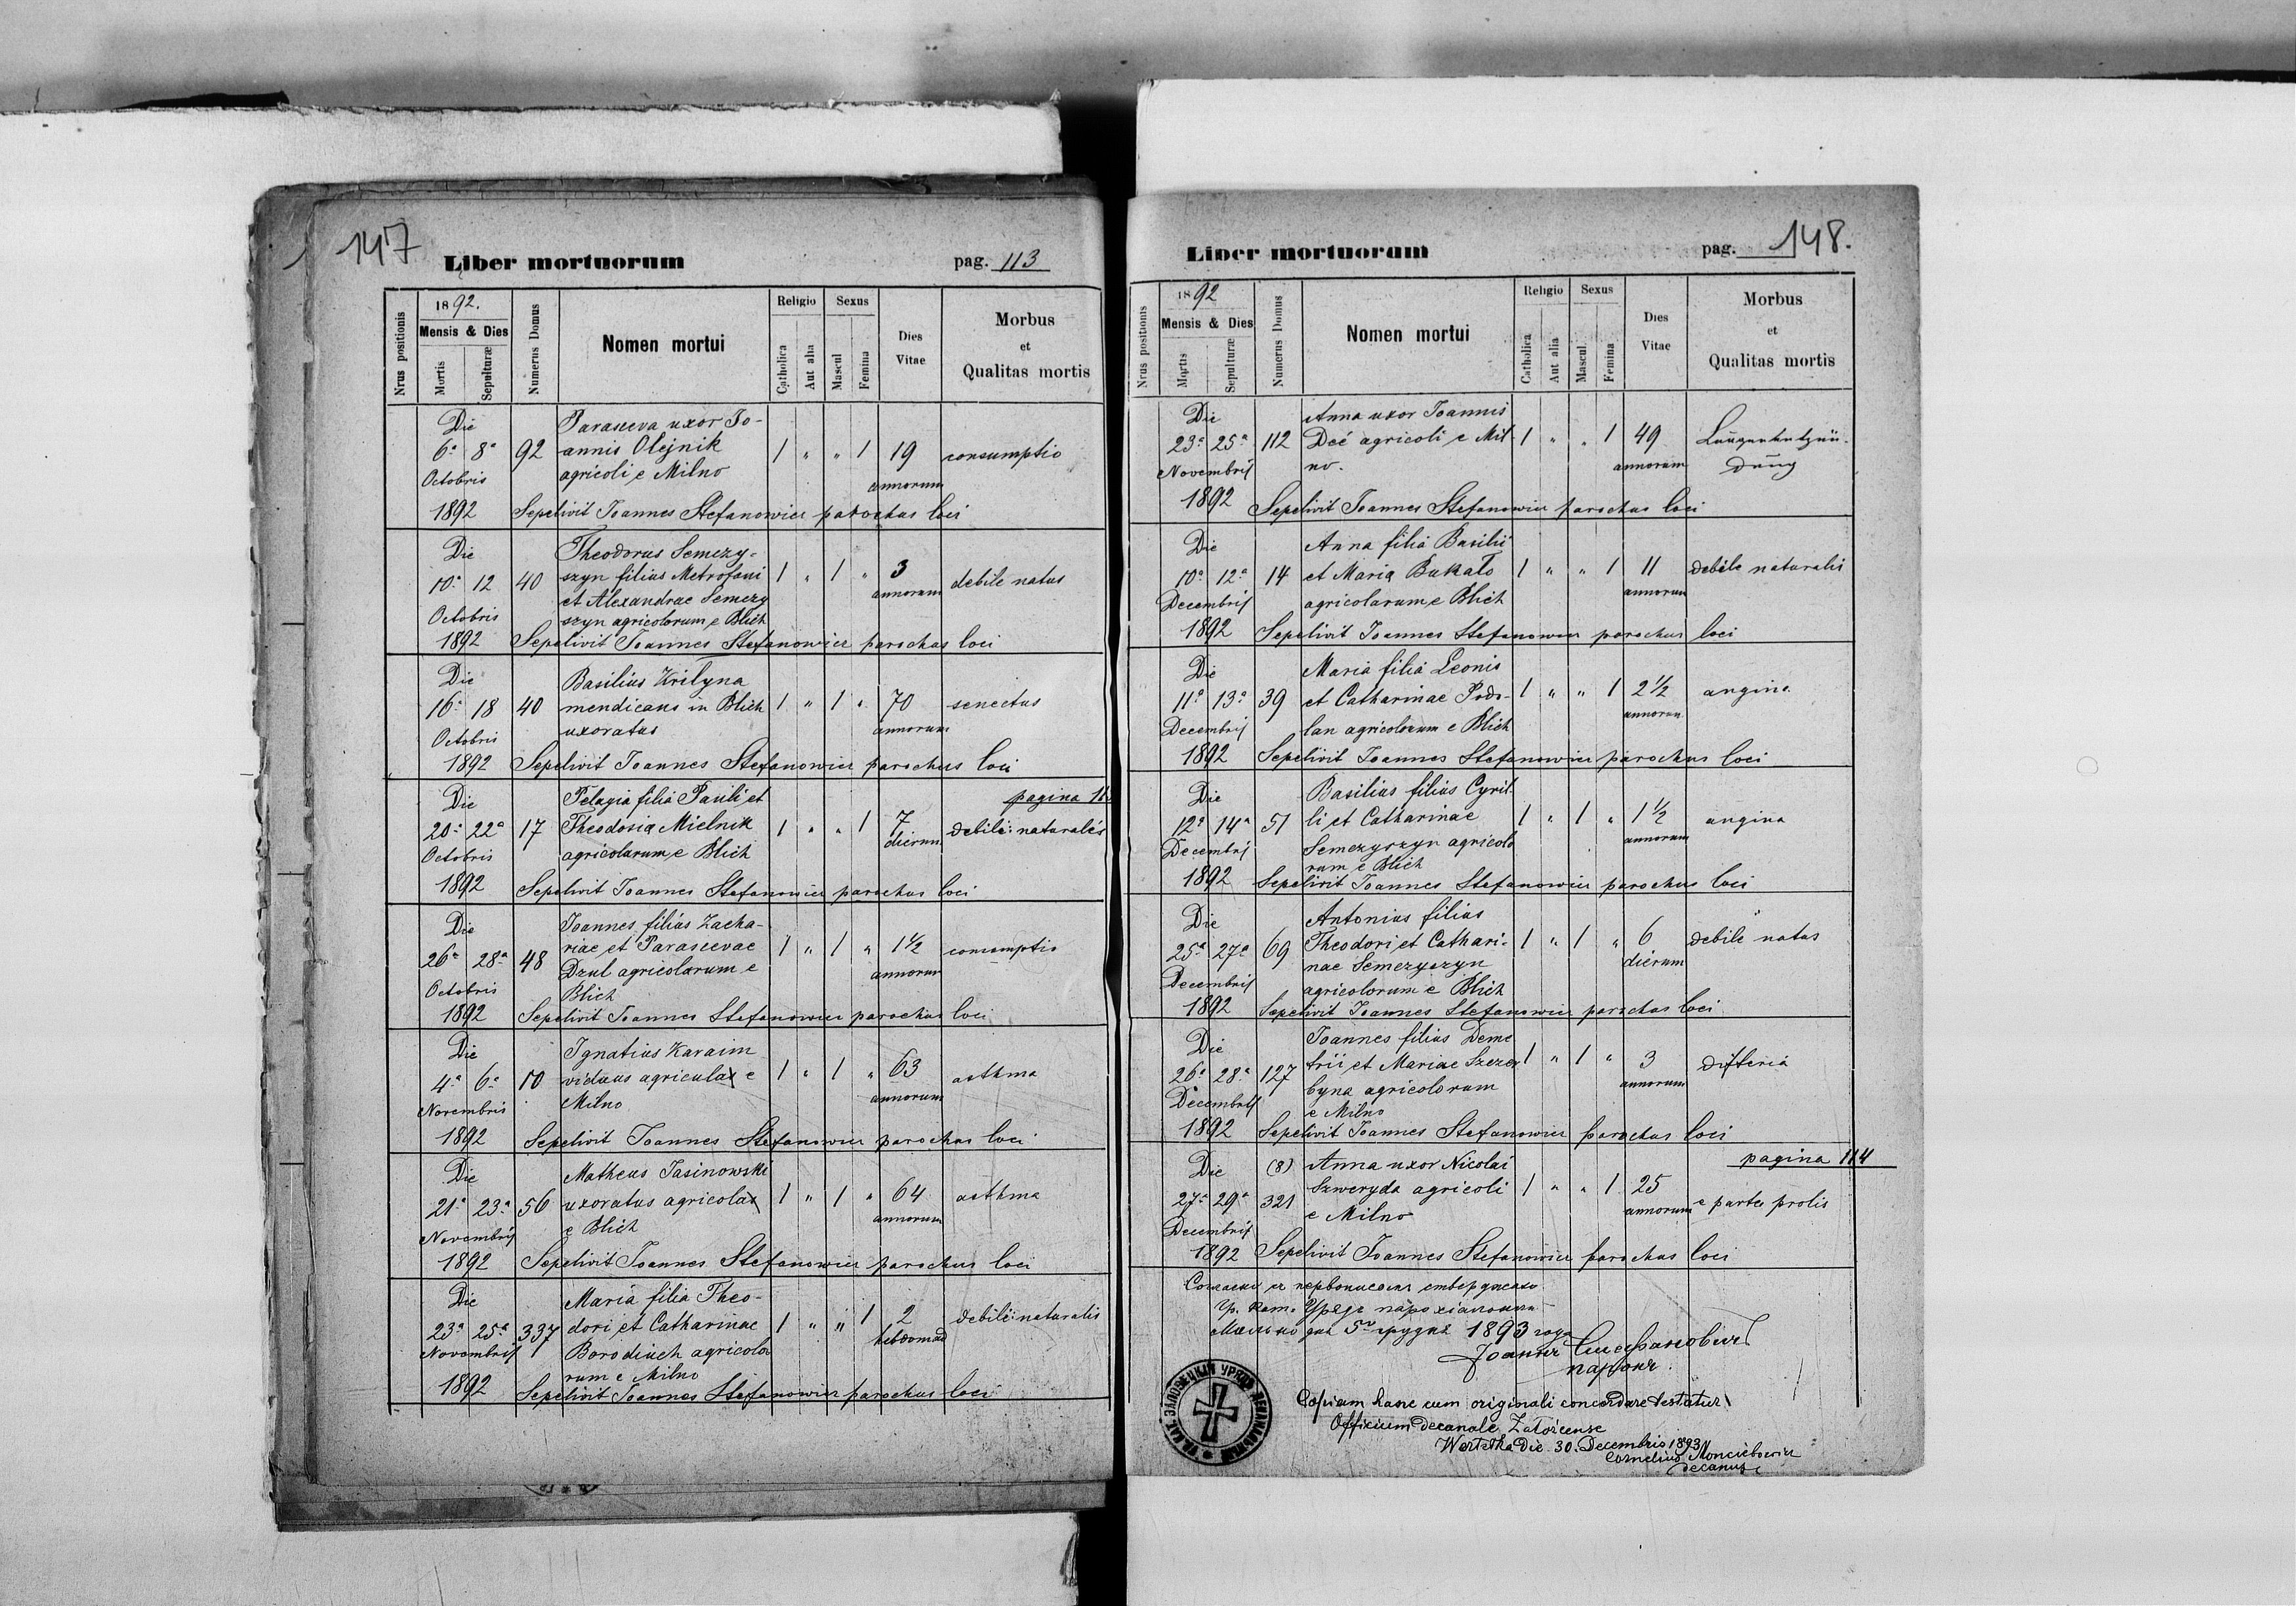 147
Liber mortuorum pag. 113
Nrus positionis
1892.
Mensis & Dies
Mortis
Sepulturæ
Numerus Domus
Nomen mortui
Religio
Catholica
Aut alia
Sexus
Mascul
Femina
Dies
Vitae
Morbus
et
Qualitas mortis
Die Parasceva uxor Jo-
6a 8a 92 annis Olejnik 1 " " 1 19 consumptio
Octobris agricoli e Milno annorum
1892 Sepelivit Joannes Stefanowicz parochus loci
Die Theodorus Semczy-
10a 12 40 szyn filius Metrofani 1 " 1 " 3 debile natus
et Alexandrae Semczy annorum
Octobris szyn agricolorum e Blich
1892 Sepelivit Joannes Stefanowicz parochus loci
Die Basilius Krilyna
16a 18 40 mendicans in Blich 1 " 1 " 70 senectus
Octobris uxoratus annorum
1892 Sepelivit Joannes Stefanowicz parochus loci
Die Pelagia filia Pauli et pagina
20a 22a 17 Theodosia Mielnik 1 " " 1 7 debili: naturalis
Octobris agricolarum e Blich dierum
1892 Sepelivit Joannes Stefanowicz parochus loci
Die Joannes filius Zacha-
26a 28a 48 riae et Parascevae 1 " 1 " 1½ consomptio
Dzul agricolarum e annorum
Octobris Blich
1892 Sepelivit Joannes Stefanowicz parochus loci
Die Ignatius Karaim
4a 6a 10 viduus agricula e 1 " 1 " 63 asthma
Novembris Milno annorum
1892 Sepelivit Joannes Stefanowicz parochus loci
Die Matheus Jasinowski
21a 23a 56 uxoratus agricola 1 " 1 " 64 asthma
Novembris e Blich annorum
1892 Sepelivit Joannes Stefanowicz parochus loci
Die Maria filia Theo-
23a 25a 337 dori et Catharinae 1 " " 1 2 debili: naturalis
Novembris Borodiuch agricolo hebdomad
rum e Milno
1892 Sepelivit Joannes Stefanowicz parochus loci
Liber mortuorum pag. 148.
Nrus positionis
1892
Mensis & Dies
Mortis
Sepulturæ
Numerus Domus
Nomen mortui
Religio
Catholica
Aut alia
Sexus
Mascul.
Femina
Dies
Vitae
Morbus
et
Qualitas mortis
Die Anna uxor Joannis
23a 25a 112 Deć agricoli e Mil- 1 " " 1 49
Novembris no. annorum
1892 Sepelivit Joannes Stefanowicz parochus loci
Die Anna filia Basilii
10a 12a 14 et Maria Bukało 1 " " 1 11 debile naturalis
Decembris agricolarum e Blich annorum
1892 Sepelivit Joannes Stefanowicz parochus loci
Die Maria filia Leonis
11a 13a 39 et Catharinae Podo- 1 " " 1 2½ angina
Decembris lan agricolorum e Blich annorum
1892 Sepelivit Joannes Stefanowicz parochus loci
Die Basilius filius Cyril-
12a 14a 51 li et Catharinae 1 " 1 " 1½ angina
Decembris Semczyszyn agricolo annorum
rum e Blich
1892 Sepelivit Joannes Stefanowicz parochus loci
Die Antonius filius
25a 27a 69 Theodori et Cathari- 1 " 1 " 6 debile natus
nae Semczyszyn dierum
Decembris agricolorum e Blich
1892 Sepelivit Joannes Stefanowicz parochus loci
Die Joannes filius Deme
26a 28a 127 trii et Mariae Szczer 1 " 1 " 3 difteria
byna agricolorum annorum
Decembris e Milno
1892 Sepelivit Joannes Stefanowicz parochus loci
pagina 114
Die (8) Anna uxor Nicolai
27a 29a 321 Szweryda agricoli 1 " " 1 25 e partu prolis
Decembris e Milno annorum
1892 Sepelivit Joannes Stefanowicz parochus loci
гр. кат. Уряд парохіальний
дня 5 грудня 1893 года
Стефановичъ
парохъ.
Copiam hanc cum originali concordare testatur
Officium decanale
Die 30. Decembris 1893
Cornelius
decanus